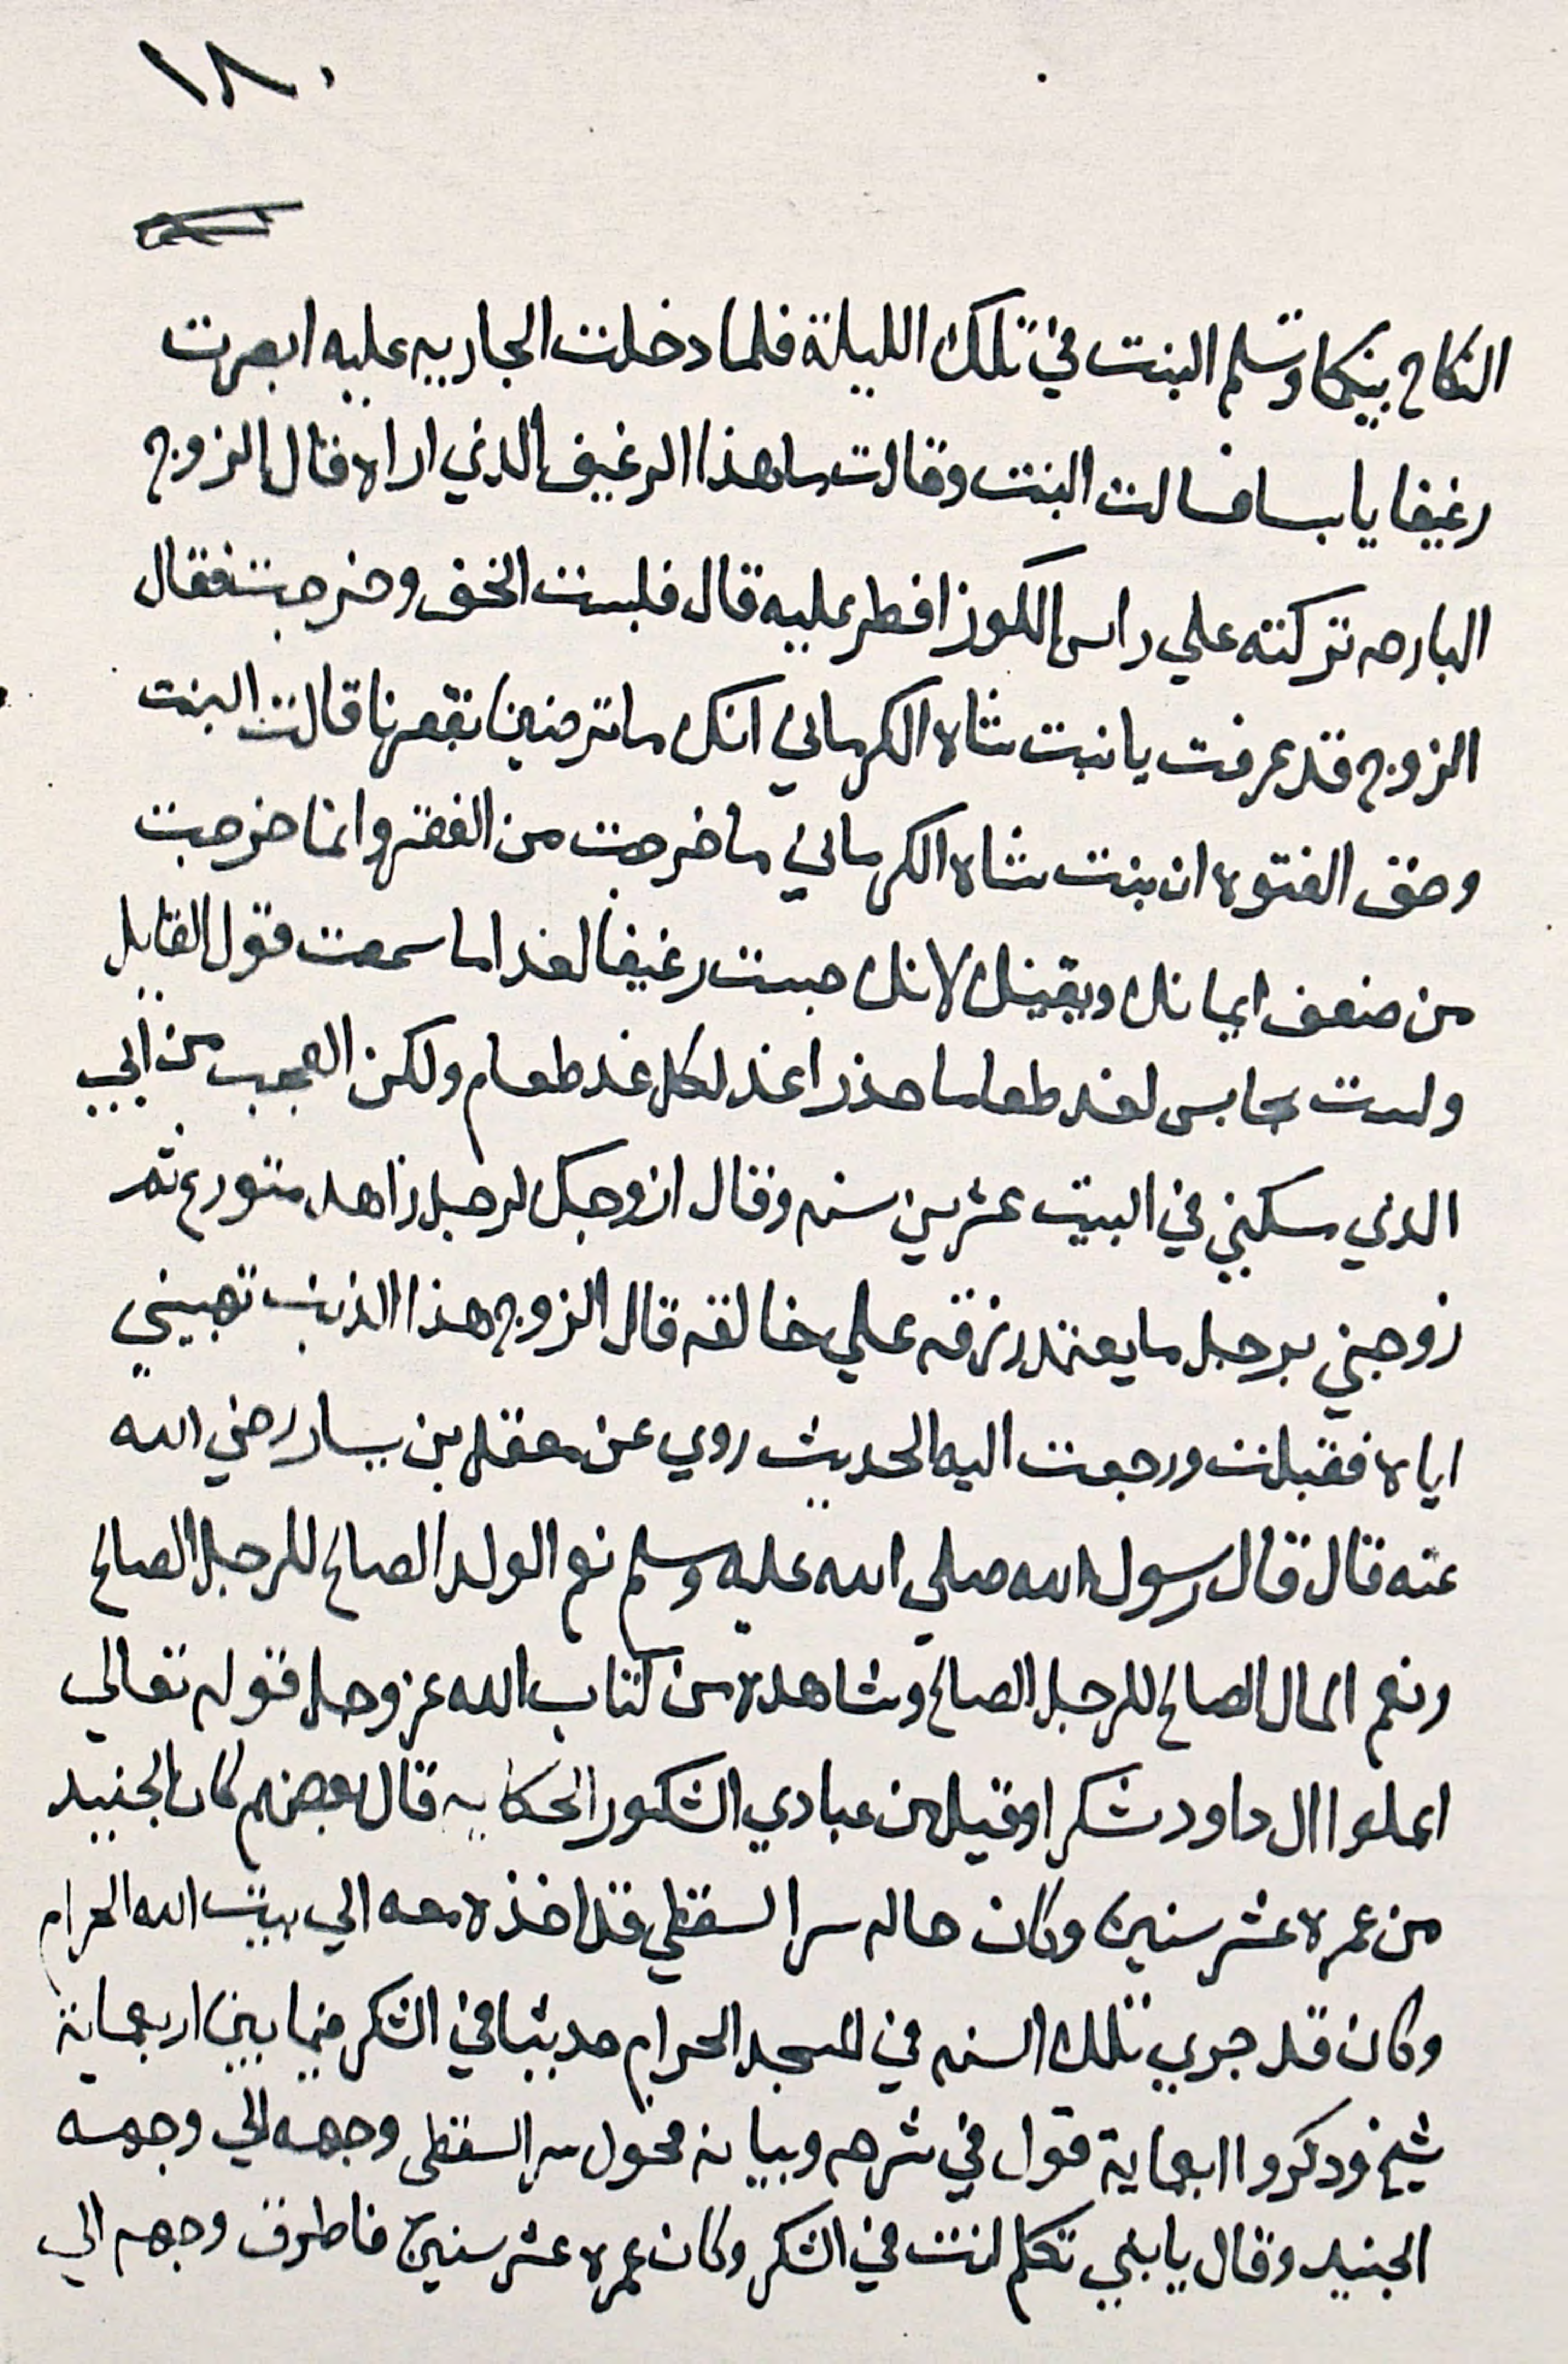 ١٨٠
النكاح بينكما وتسلم البنت في تلك الليلة فلما دخلت الجاريه عليه ابصرت
رغيفا يابسا فسالت البنت وقالت ما هذا الرغيف الذي اراه قال الزوج
البارحه تركته علي راس الكوز افطر عليه قال فلبست الخف وخرجت فقال
الزوج قد عرفت يا بنت شاه الكرماني انك ما ترضين بفقرنا قالت البنت
وحق الفتوه ان بنت شاه الكرماني ما خرجت من الفقر وانما خرجت
من ضعف ايمانك ويقينك لانك حبست رغيفا لغد اما سمعت قول القايل
ولست بحابس لغد طعاما حذرا غد لكل غد طعام ولكن العجب من ابي
الذي سكنني في البيت عشرين سنه وقال ازوجك لرجل زاهد متورع ثم
زوجني برجل ما يعتمد رزقه علي خالقه قال الزوج هذا الذنب تهبيني
اياه فقبلت ورجعت اليه الحديث روي عن معقل بن يسار رضي الله
عنه قال قال رسول الله صلي الله عليه وسلم نعم الولد الصالح للرجل الصالح
ونعم المال الصالح للرجل الصالح وشاهده من كتاب الله عز وجل قوله تعالي
اعملوا ال داود شكرا وقيل من عبادي الشكور الحكايه قال بعضهم كان الجنيد
من عمره عشر سنين وكان خاله سرا لسقطي قد اخذه معه الي بيت الله الحرام
وكان قد جري تلك السنه في المسجد الحرام حديثا في الشكر فيما بين اربعماية
شيخ ودكروا ابعماية قول في شرحه وبيانه فحول سرا لسقطى وجهه الي وجهه
الجنيد وقال يا بني تكلم انت في الشكر وكان عمره عشر سنين فاطرق وجهه الي